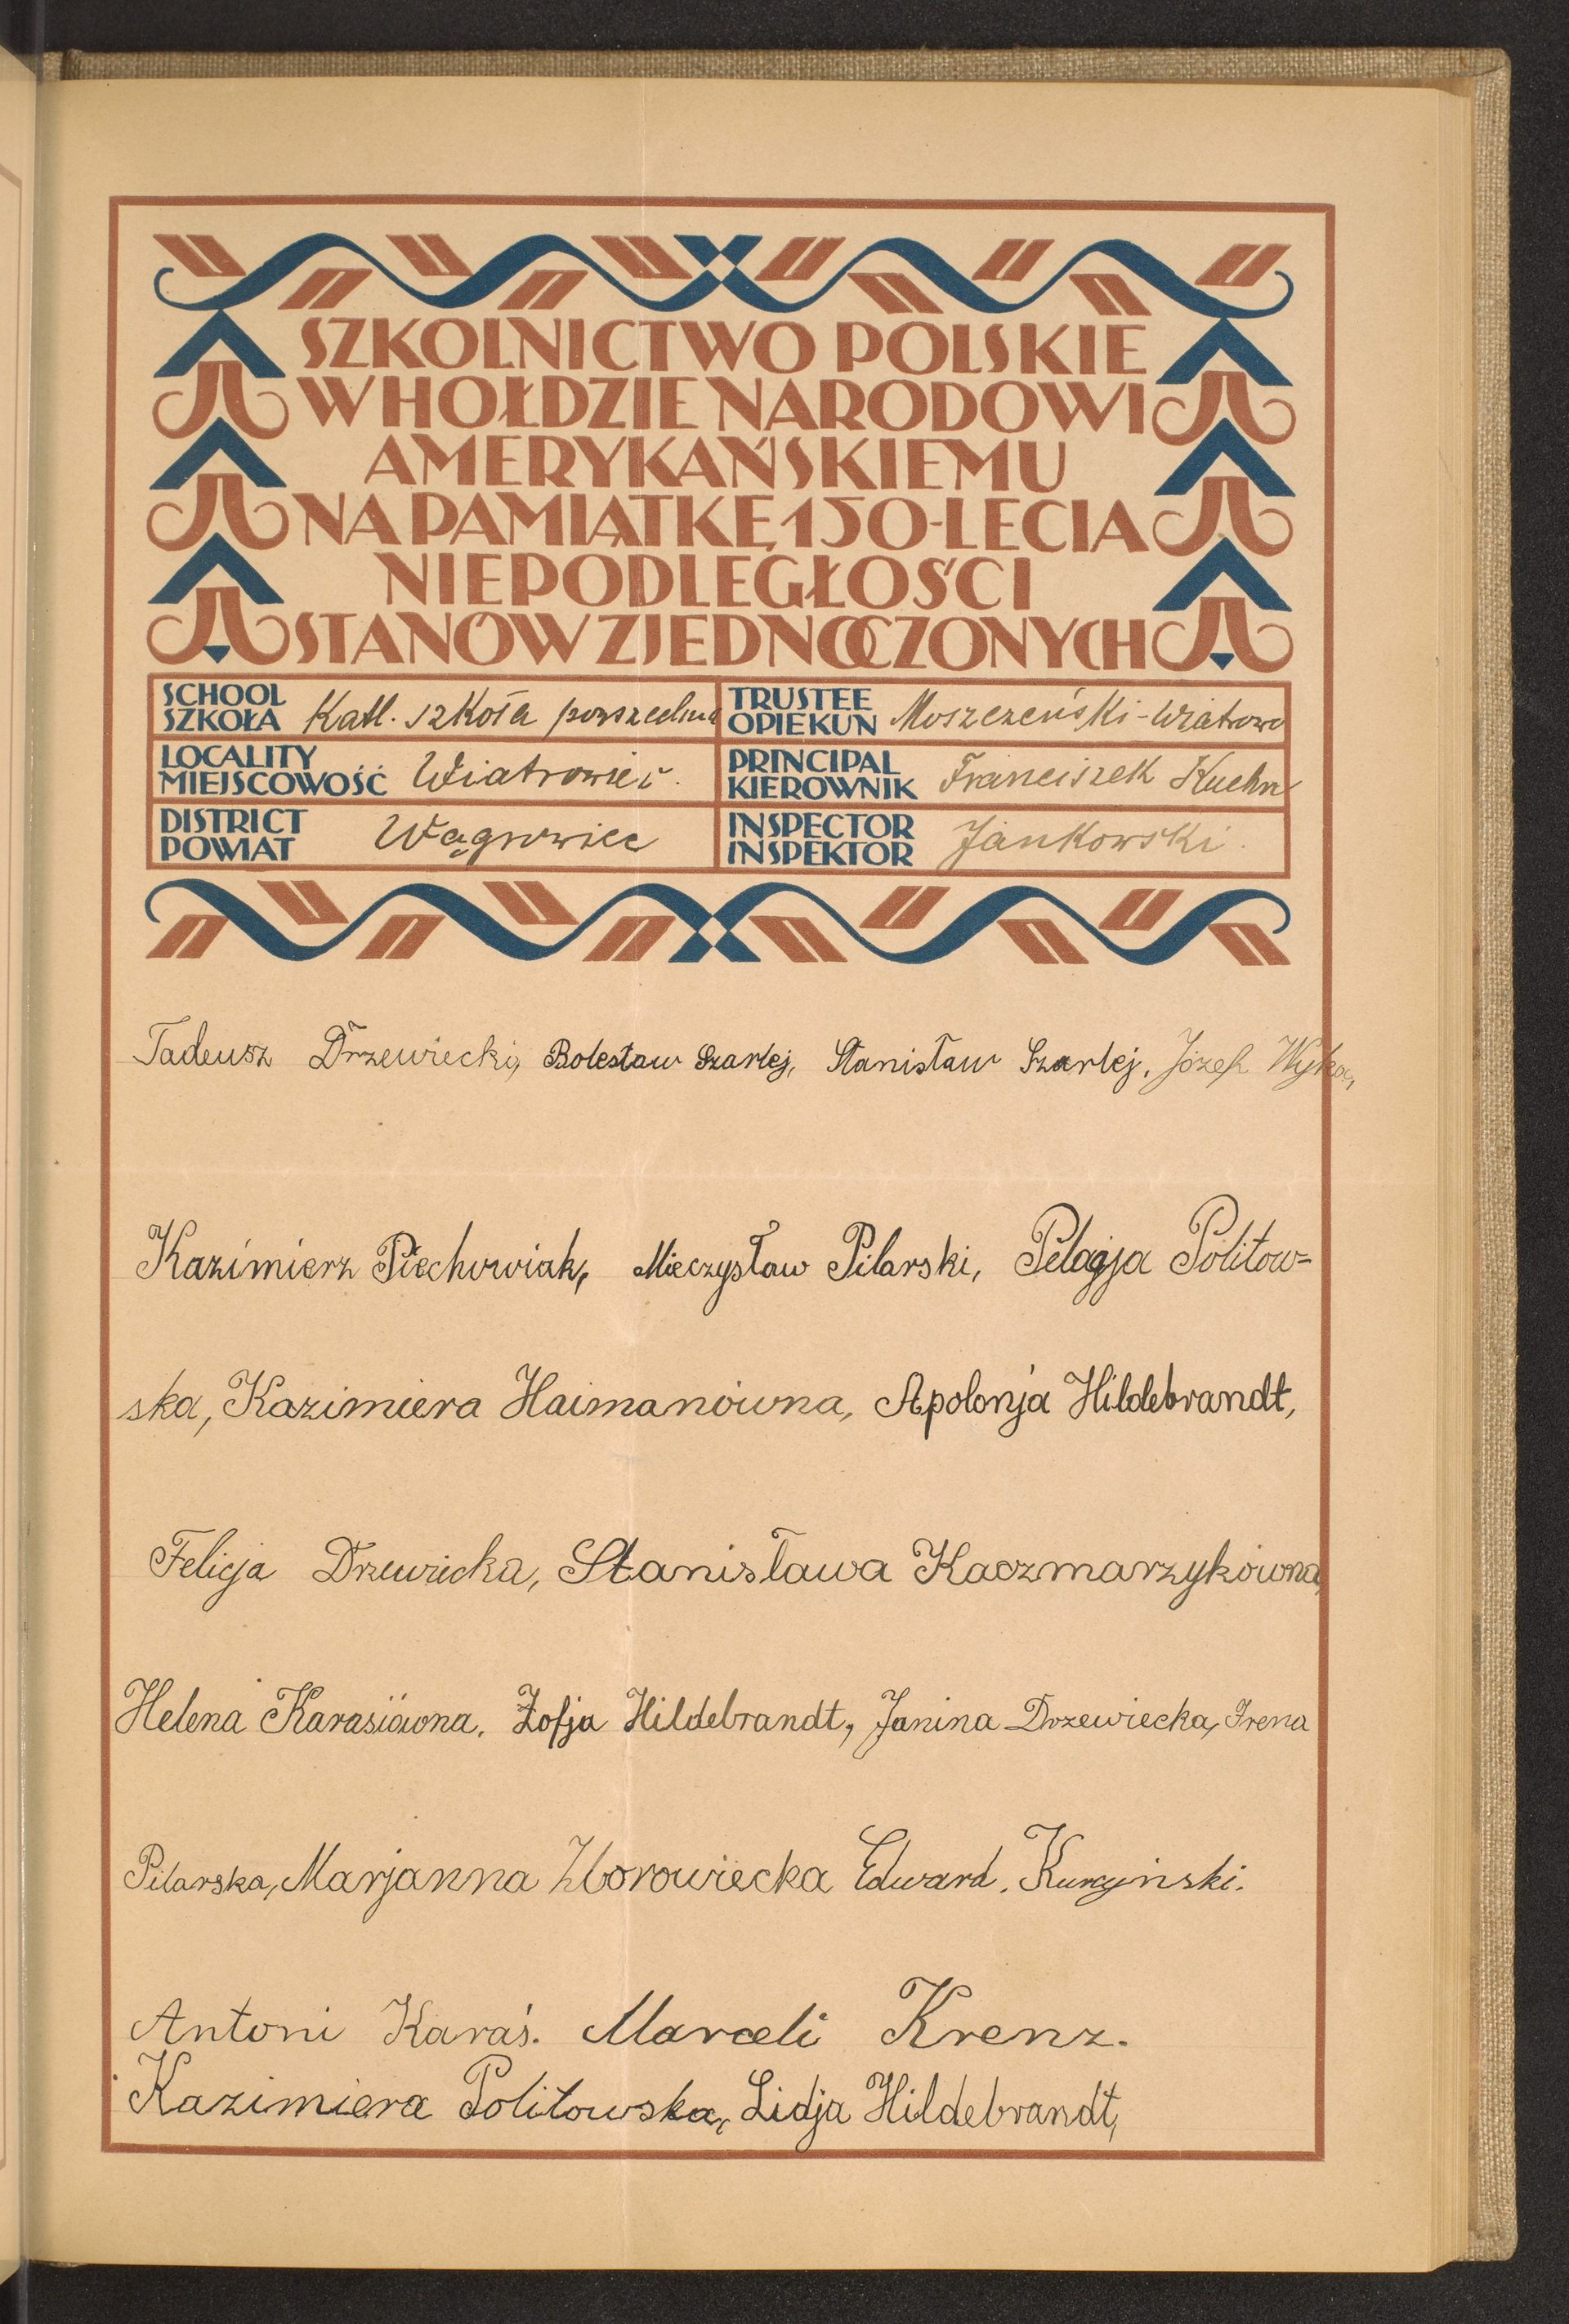 SZKOLNICTWO POLSKIE
W HOŁDZIE NARODOWI
AMERYKAŃSKIEMU
NA PAMIĄTKĘ 150-LECIA
NIEPODLEGŁOŚCI
STANÓW ZJEDNOCZONYCH
SCHOOL
SZKOŁA Katl. szkoła powszechna
TRUSTEE
OPIEKUN Moszczeński - Wiatrowo
LOCALITY
MIEJSCOWOŚĆ Wiatrowiec.
PRINCIPAL
KIEROWNIK Franciszek Kuehn
DISTRICT
POWIAT Wągrowiec
INSPECTOR
INSPEKTOR Jankowski.
Tadeusz Drzewiecki, Bolesław Szarlej, Stanisław Szarlej, Józef Wyka,
Kazimierz Piechowiak, Mieczysław Pilarski, Pelagja Politow-
ska, Kazimiera Haimanówna, Apolonja Hildebrandt,
Felicja Drzewicka, Stanisława Kaczmarzykówna,
Helena Karasiówna, Zofja Hildebrandt, Janina Drzewiecka, Irena
Pilarska, Marjanna Zborowiecka Edward Kurcyinski.
Antoni Karaś. Marceli Krenz.
Kazimiera Politowska, Lidja Hildebrandt,